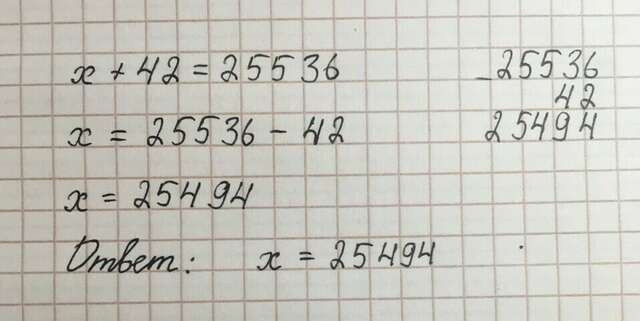 x + 42 = 25536
x = 25536 - 42
x = 25494
Ответ: x = 25494
- 25536
42
25494